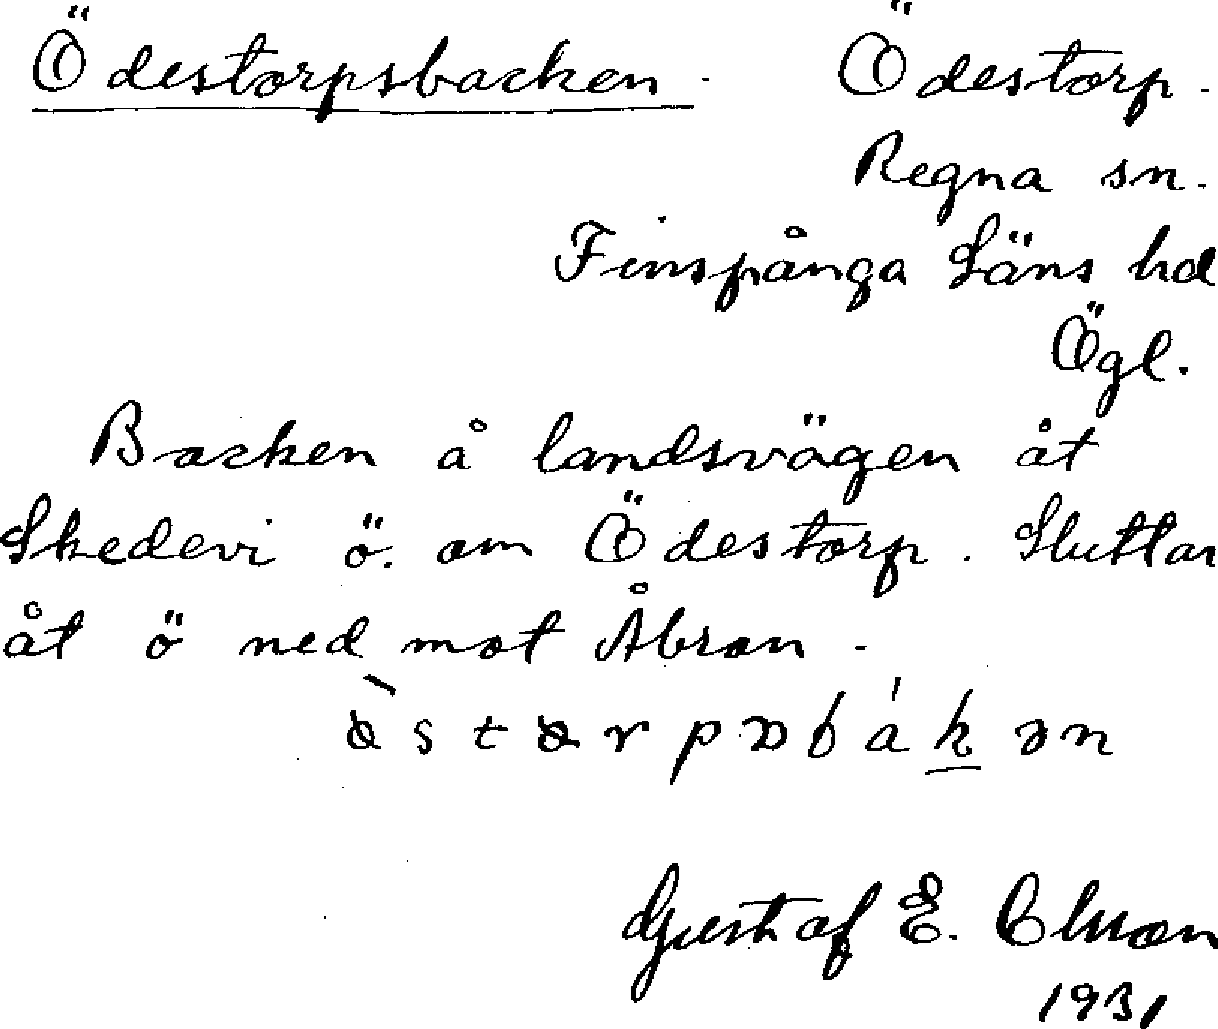 Ödestorpsbacken. Ödestorp.
Regna sn.
Finspånga Läns hd
Ögl.
Backen å landsvägen åt
Skedevi ö. om Ödestorp. Sluttar
åt ö ned mot Åbron.
Gustaf E. Olsson
1931